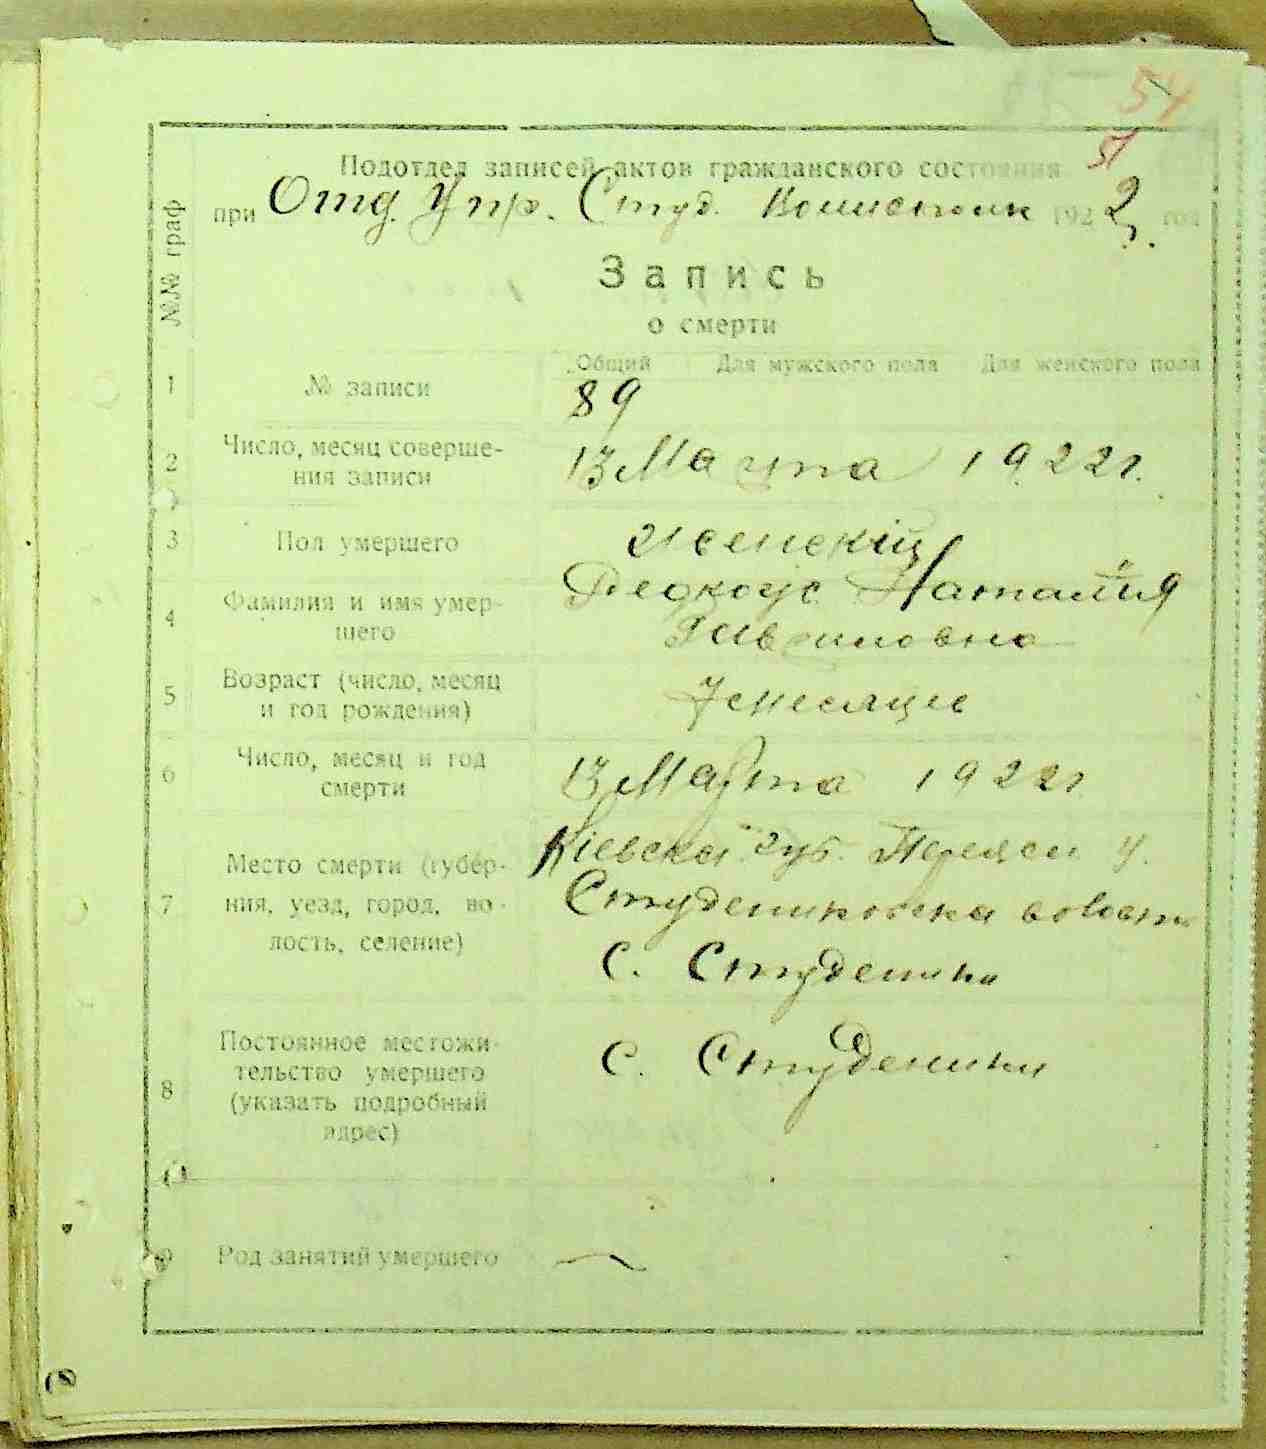 54
51
Подотдел записей актов гражданского состояния
при Отд. Упр. Студ. 1922 год
№№ граф
Запись
о смерти
Общий Для мужского пола Для женского пола
1 № записи 89
2 Число, месяц соверше-
ния записи 13 Марта 1922 г.
3 Пол умершего женскій
4 Фамилия и имя умер-
шего Наталия
5 Возраст (число, месяц
и год рождения) 7 месяцев
6 Число, месяц и год
смерти 13 Марта 1922 г.
7 Место смерти (губер-
ния, уезд, город, во-
лость, селение) Кіевска губ. Переясл у.
Студениковска волость
С. Студеники
8 Постоянное местожи-
тельство умершего
(указать подробный
адрес) С. Студеники
9 Род занятий умершего —